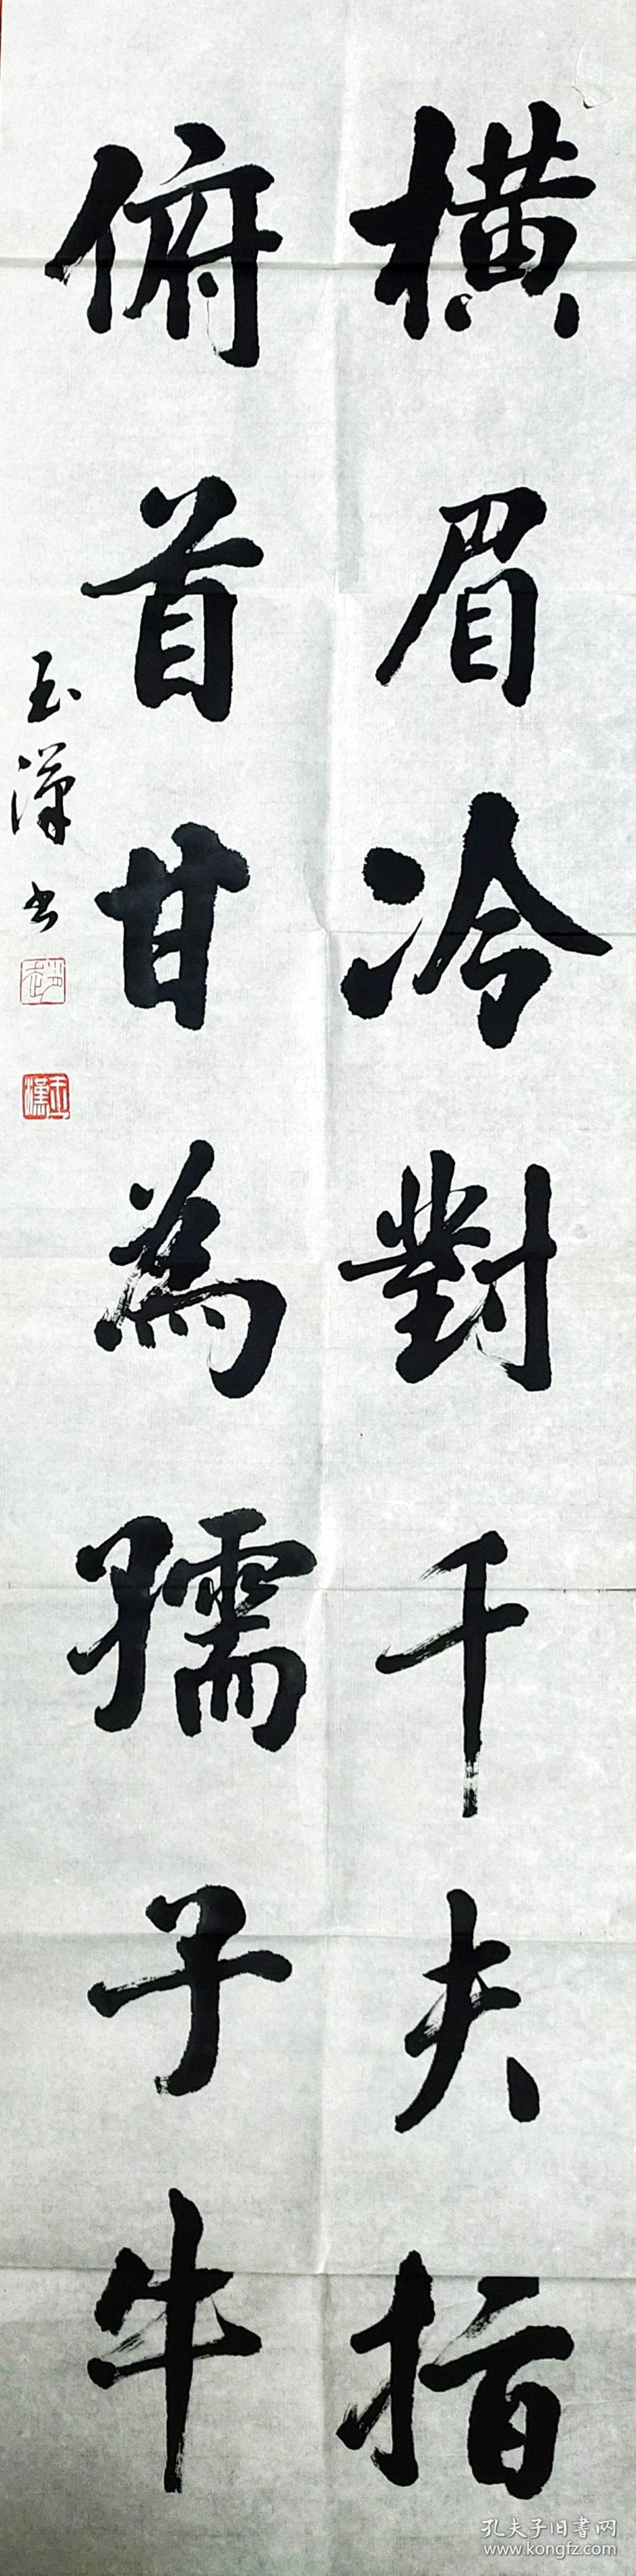 橫眉冷對千夫指
俯首甘為孺子牛
玉漢书
玉漢
孔夫子旧書网
www.kongfz.com